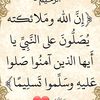 ﴿إِنَّ اللَّهَ وَمَلَائِكَتَهُ
يُصَلُّونَ عَلَى النَّبِيِّ يَا
أَيُّهَا الَّذِينَ آمَنُوا صَلُّوا
عَلَيْهِ وَسَلِّمُوا تَسْلِيمًا﴾